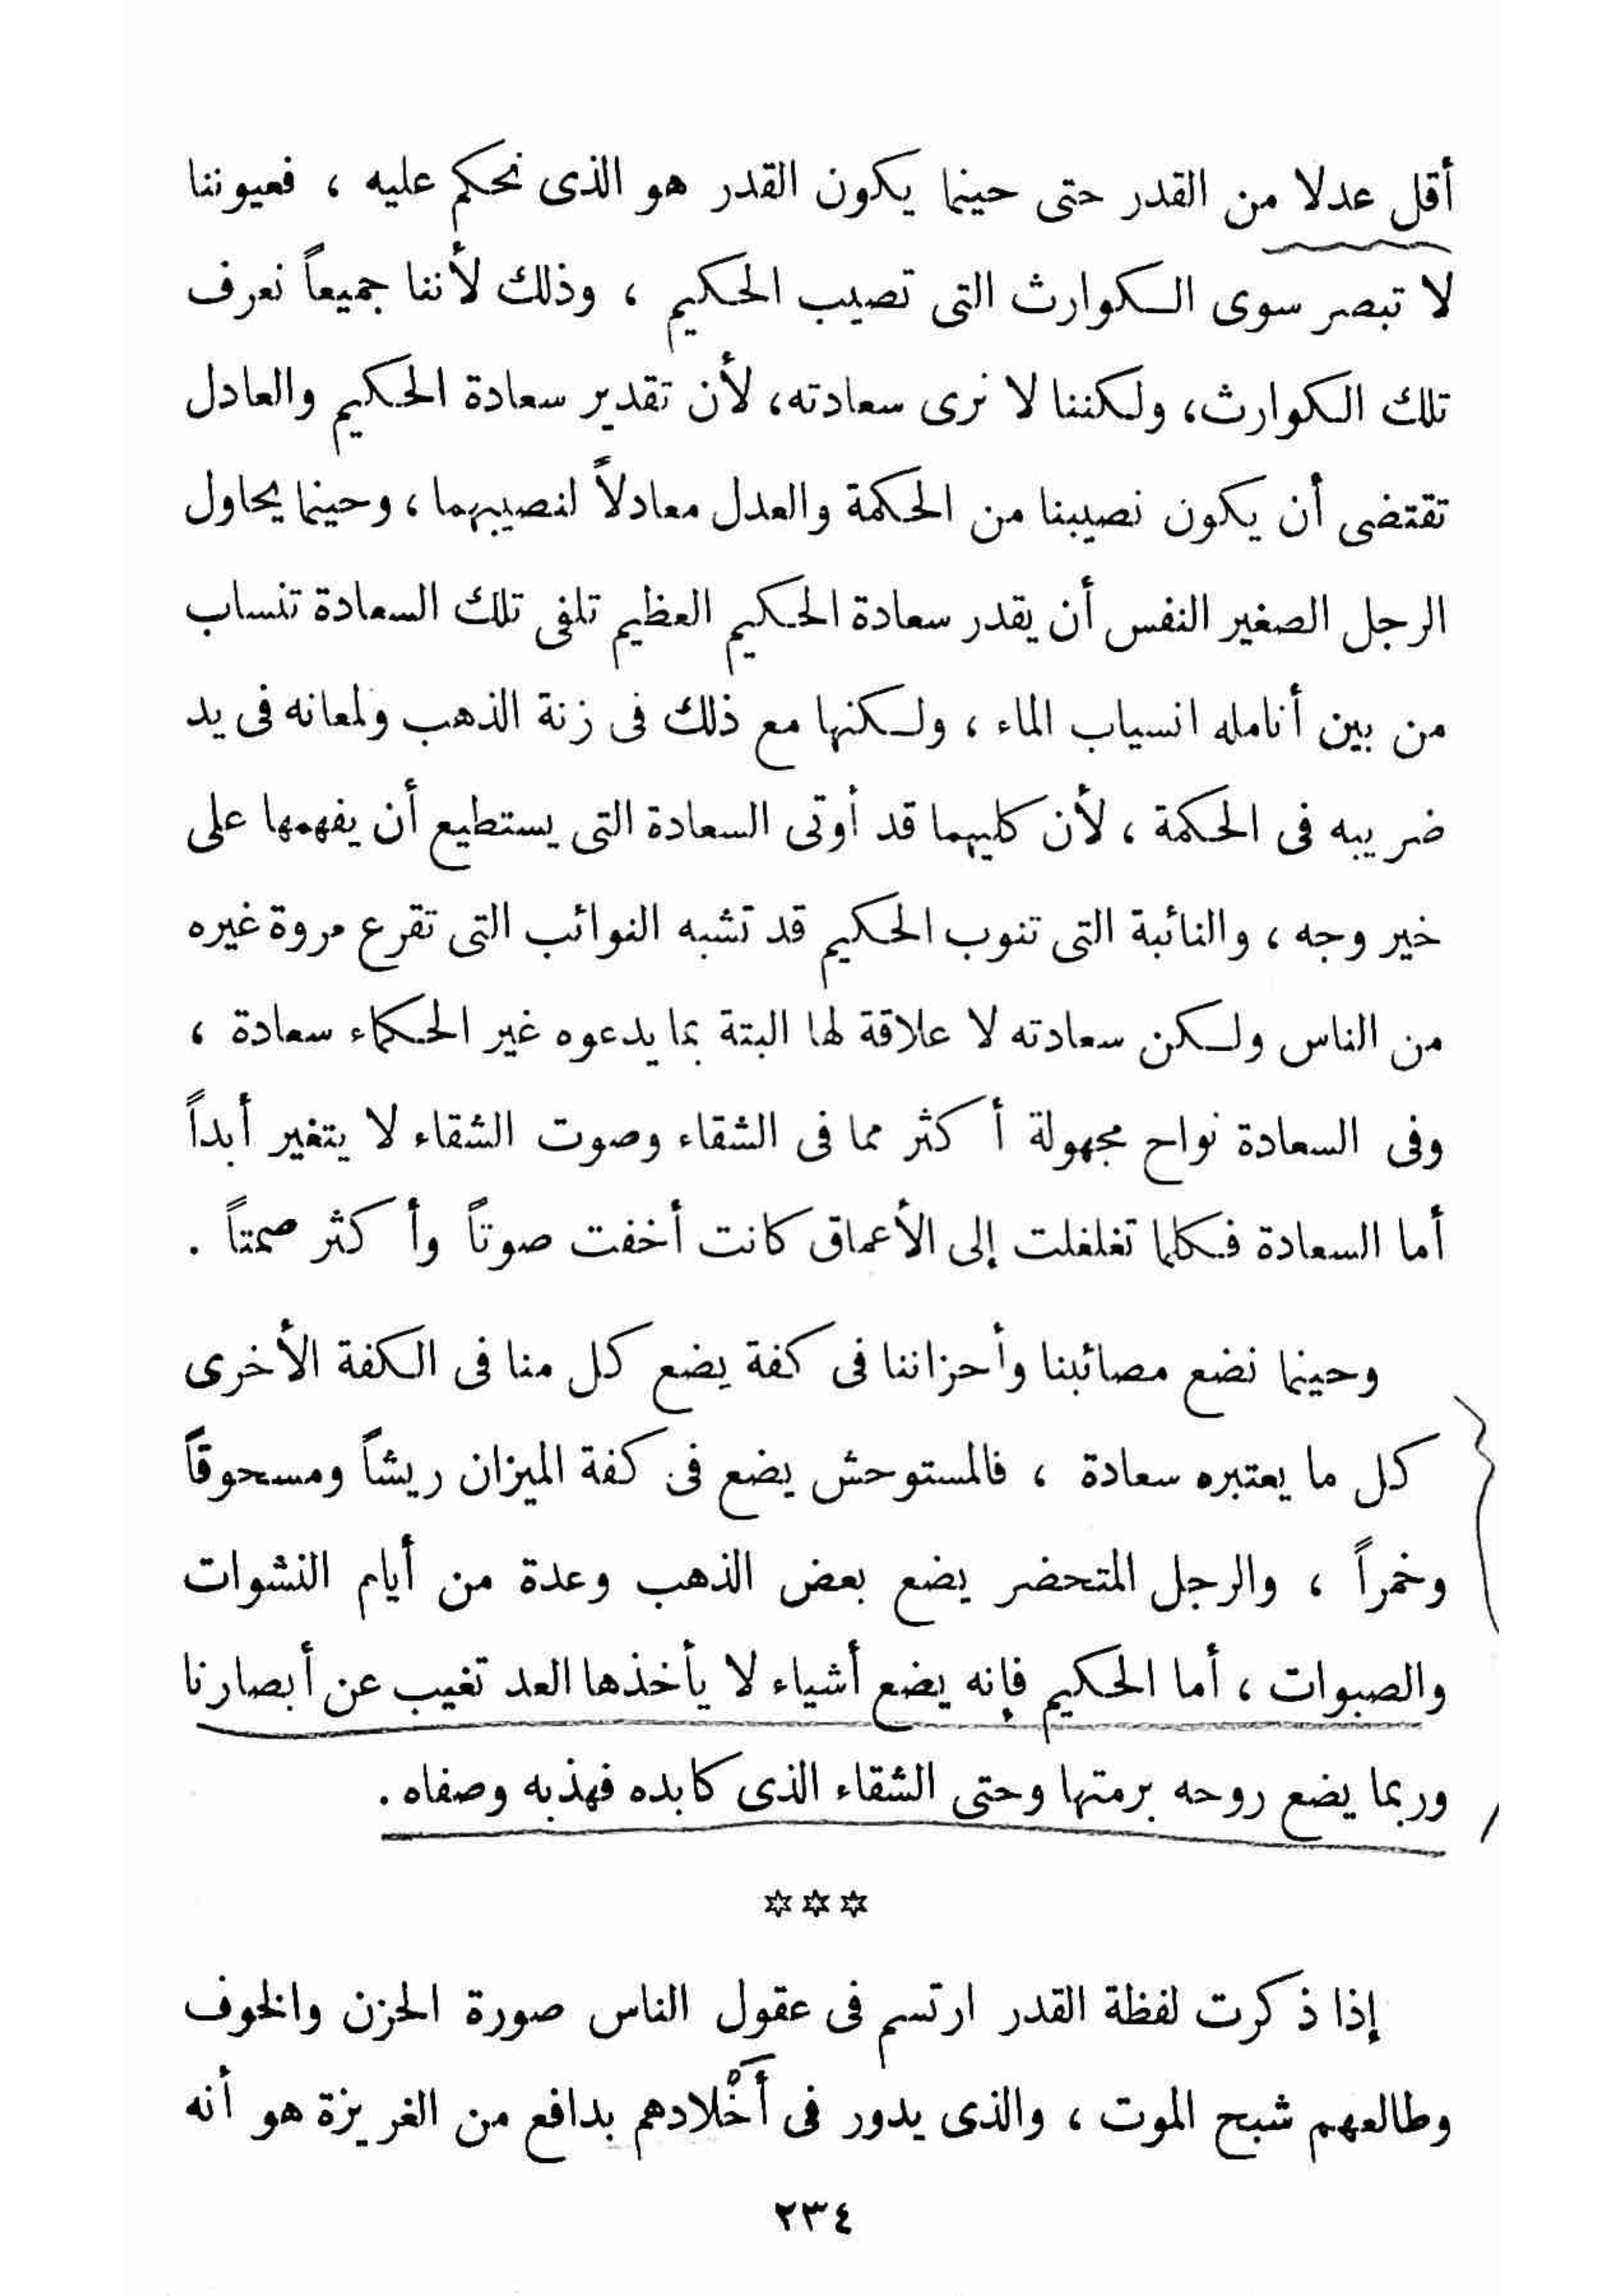 أقل عدلا من القدر حتى حينما يكون القدر هو الذى نحكم عليه ، فعيوننا
لا تبصر سوى الكوارث التى تصيب الحكيم ، وذلك لأننا جميعاً نعرف
تلك الكوارث، ولكننا لا نرى سعادته، لأن تقدير سعادة الحكيم والعادل
تقتضى أن يكون نصيبنا من الحكمة والعدل معادلاً لنصيبهما ، وحينما يحاول
الرجل الصغير النفس أن يقدر سعادة الحكيم العظيم تلفى تلك السعادة تنساب
من بين أنامله انسياب الماء ، ولكنها مع ذلك فى زنة الذهب ولمعانه فى يد
ضريبه فى الحكمة ، لأن كليهما قد أوتى السعادة التى يستطيع أن يفهمها على
خير وجه ، والنائبة التى تنوب الحكيم قد تشبه النوائب التى تقرع مروة غيره
من الناس ولكن سعادته لا علاقة لها البتة بما يدعوه غير الحكماء سعادة ،
وفى السعادة نواح مجهولة أكثر مما فى الشقاء وصوت الشقاء لا يتغير أبداً
أما السعادة فكلما تغلغلت إلى الأعماق كانت أخفت صوتاً وأكثر صمتاً .
وحينما نضع مصائبنا وأحزاننا فى كفة يضع كل منا فى الكفة الأخرى
كل ما يعتبره سعادة ، فالمستوحش يضع فى كفة الميزان ريشاً ومسحوقاً
وخمراً ، والرجل المتحضر يضع بعض الذهب وعدة من أيام النشوات
والصبوات ، أما الحكيم فإنه يضع أشياء لا يأخذها العد تغيب عن أبصارنا
وربما يضع روحه برمتها وحتى الشقاء الذى كابده فهذبه وصفاه .
✡ ✡ ✡
إذا ذكرت لفظة القدر ارتسم فى عقول الناس صورة الحزن والخوف
وطالعهم شبح الموت ، والذى يدور فى أَخْلادهم بدافع من الغريزة هو أنه
٢٣٤